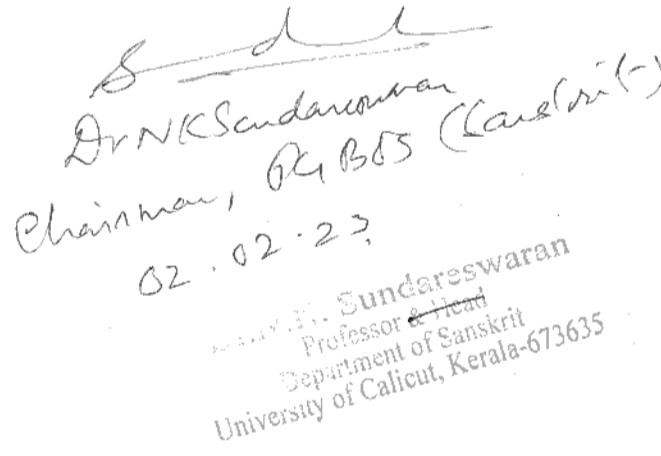 Dr N K Sundareswaran
Chairman, PG BOS (Sanskrit)
02.02.23
Sundareswaran
Professor & Head
Department of Sanskrit
University of Calicut, Kerala-673635